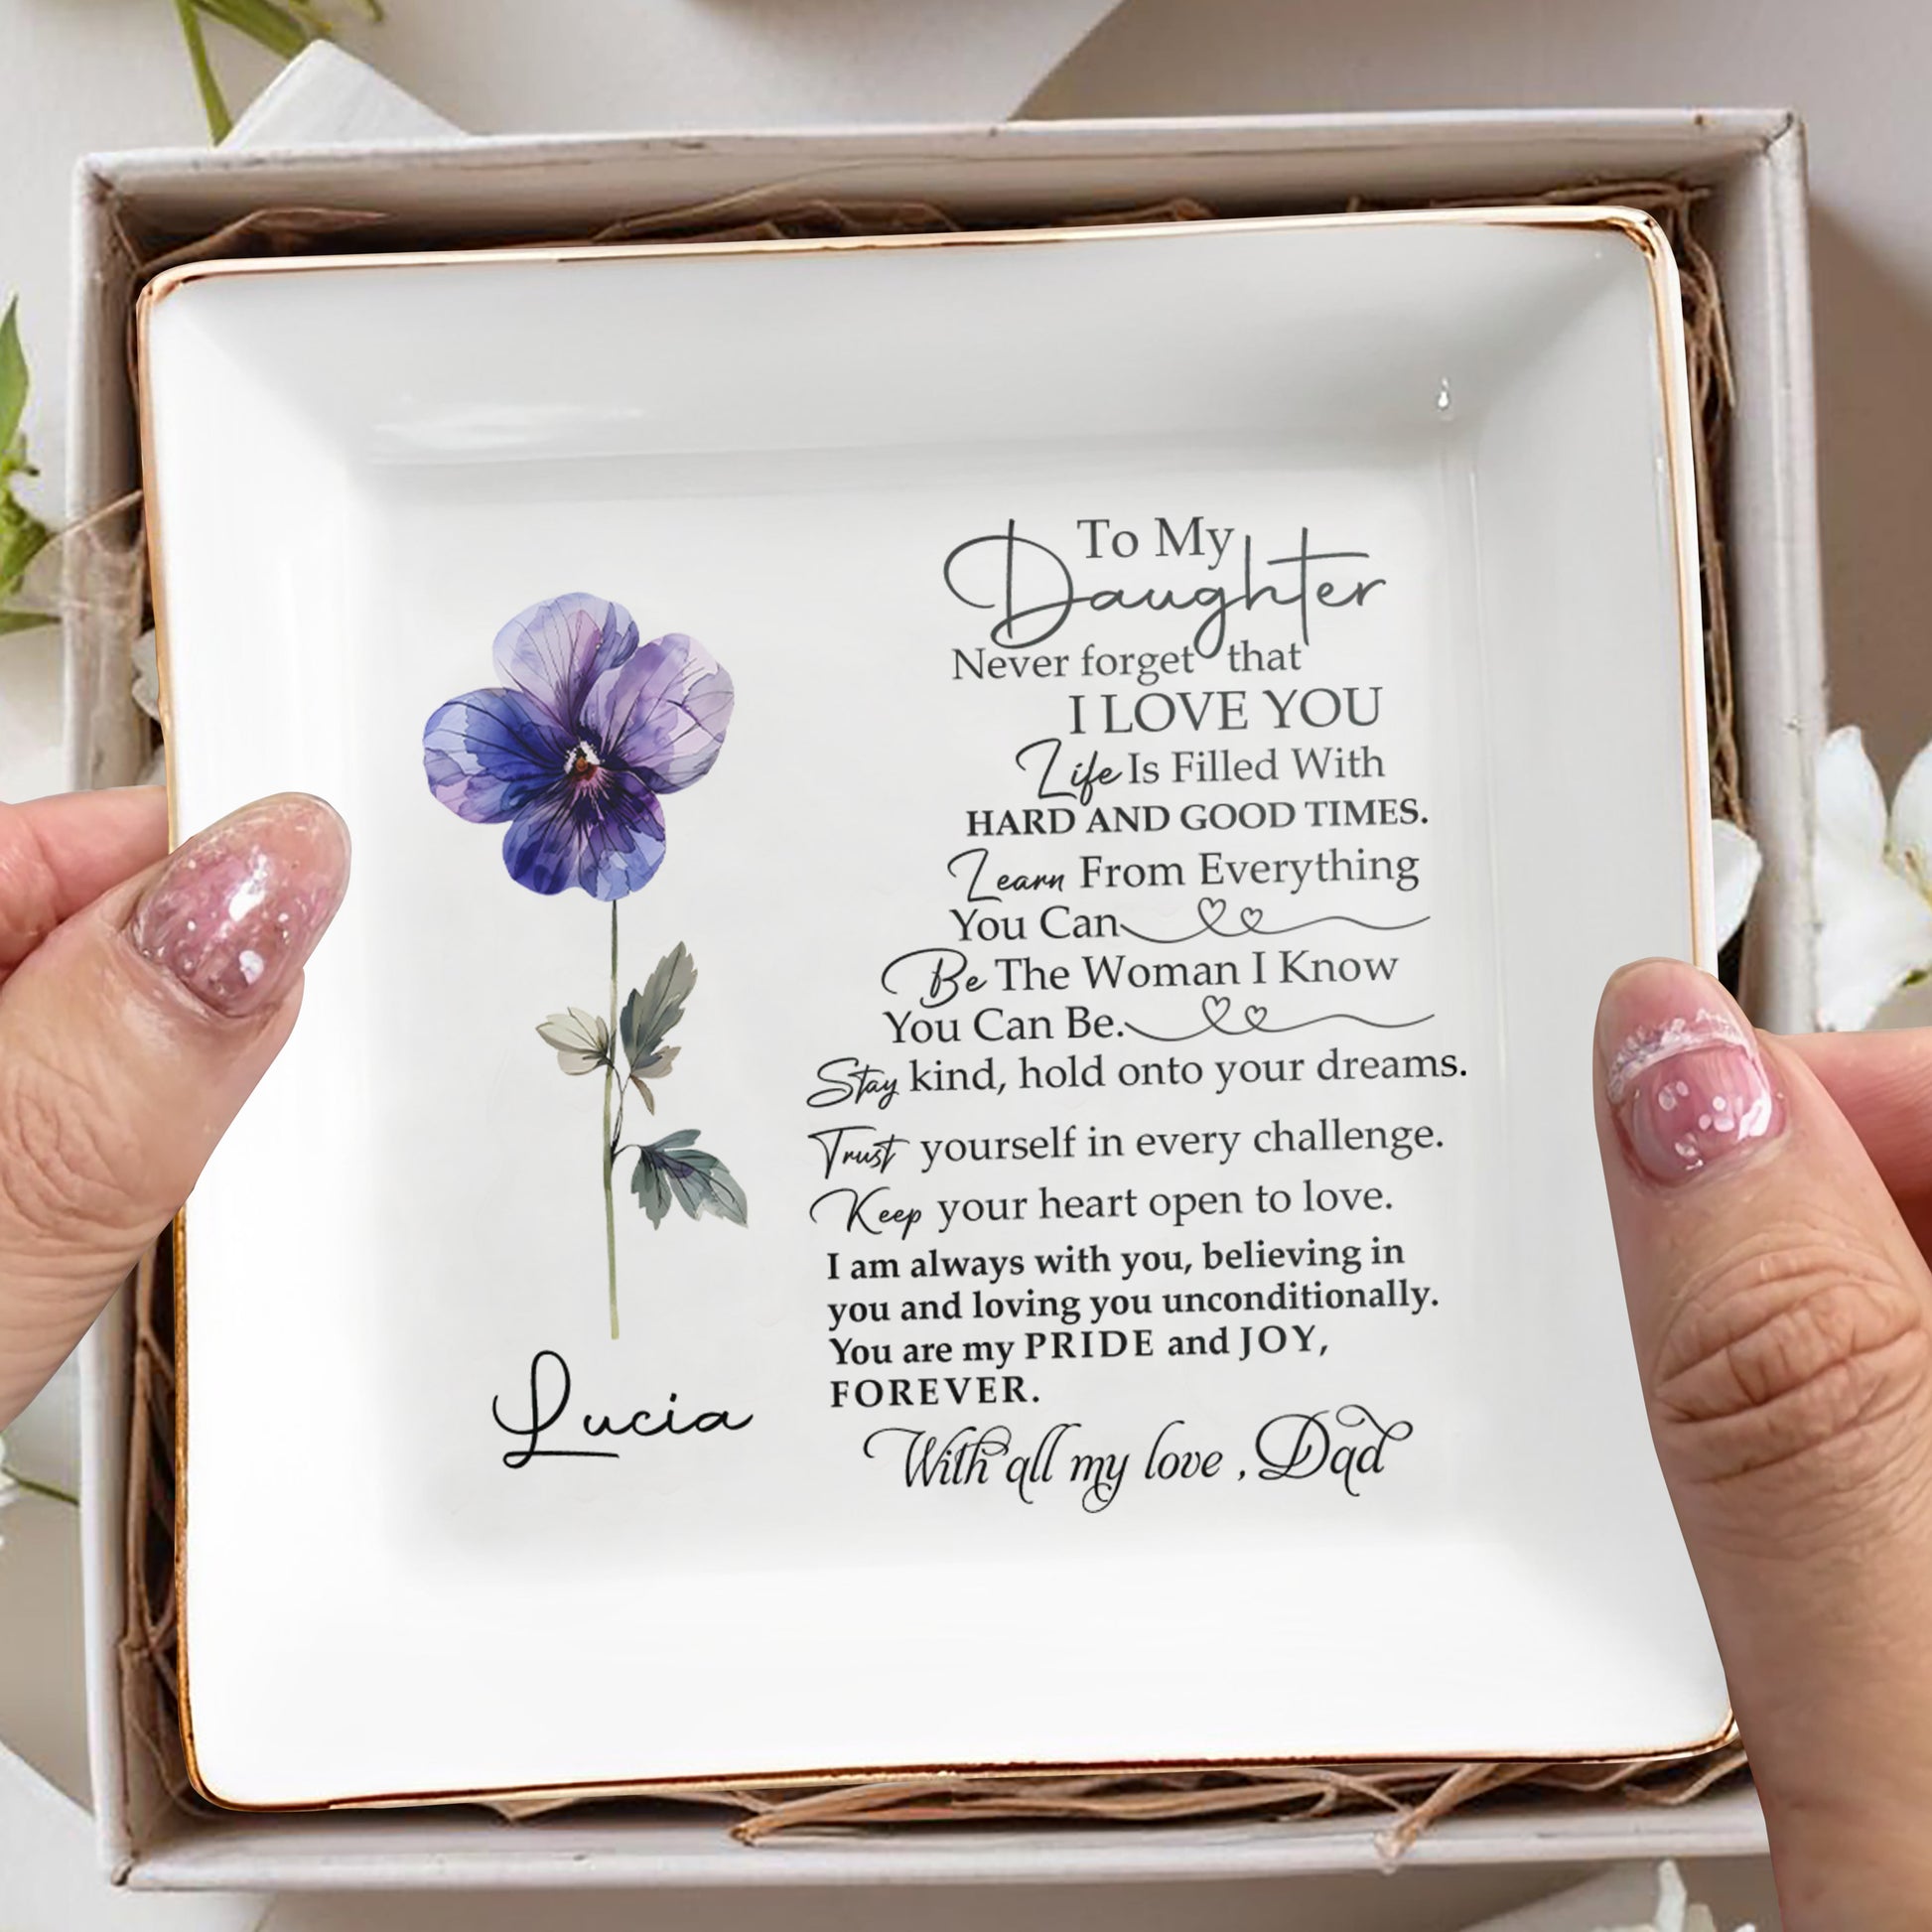 To My
Daughter
Never forget that
I LOVE YOU
Life Is Filled With
HARD AND GOOD TIMES.
Learn From Everything
You Can
Be The Woman I Know
You Can Be.
Stay kind, hold onto your dreams.
Trust yourself in every challenge.
Keep your heart open to love.
I am always with you, believing in
you and loving you unconditionally.
You are my PRIDE and JOY,
FOREVER.
With all my love , Dad
Lucia